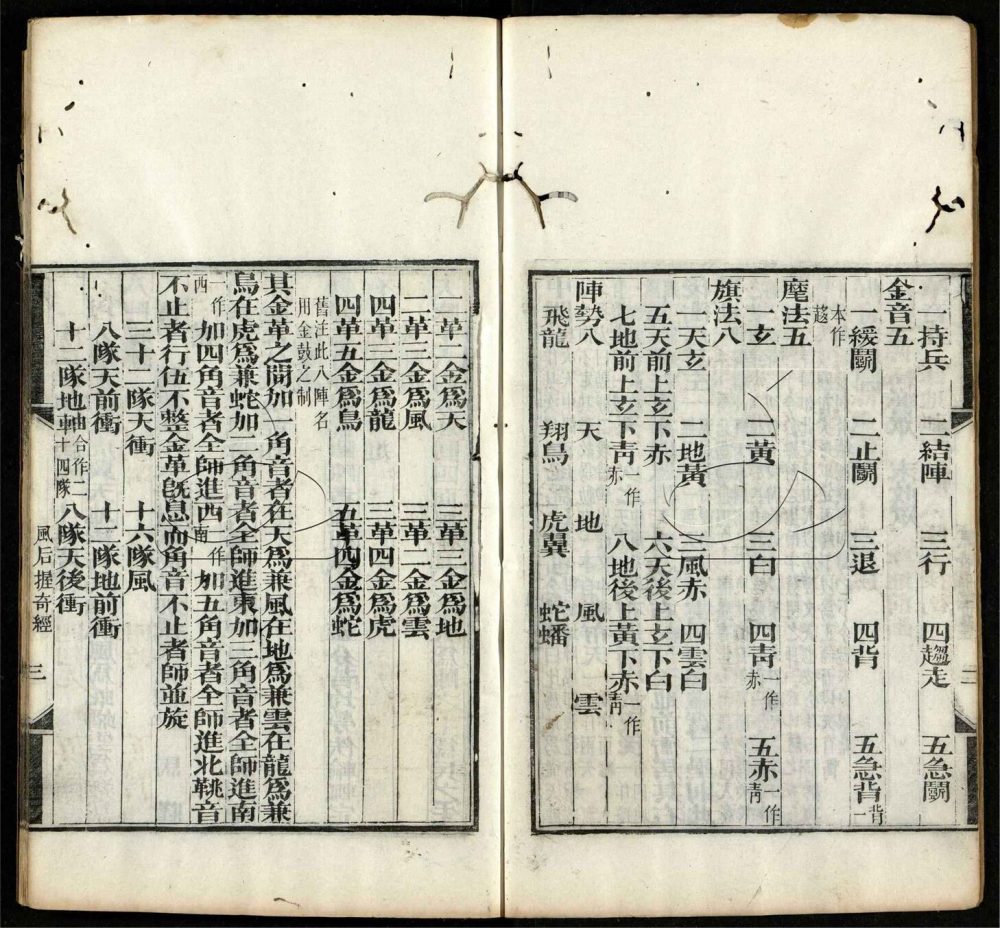 一持兵 二結陣 三行 四趨走 五急鬭
金音五
一緩鬭 二止鬭 三退 四背 五急背
麾法五
一玄 二黃 三白 四靑一作赤 五赤一作靑
旗法八
一天玄 二地黃 三風赤 四雲白
五天前上玄下赤 六天後上玄下白
七地前上玄下靑一作赤 八地後上黃下赤一作靑
陣勢八 天 地 風 雲
飛龍 翔鳥 虎翼 蛇蟠
二革二金爲天 三革三金爲地
二革三金爲風 三革二金爲雲
四革三金爲龍 三革四金爲虎
四革五金爲鳥 五革四金爲蛇
舊注此八陣名用金鼓之制
其金革之間加一角音者在天爲兼風在地爲兼雲在龍爲兼
鳥在虎爲兼蛇加二角音者全師進東加三角音者全師進南
一作西加四角音者全師進西一作南加五角音者全師進北鞉音
不止者行伍不整金革旣息而角音不止者師並旋
三十二隊天衝 十六隊風
八隊天前衝 十二隊地前衝
十二隊地軸合作二十四隊八隊天後衝
風后握奇經 三